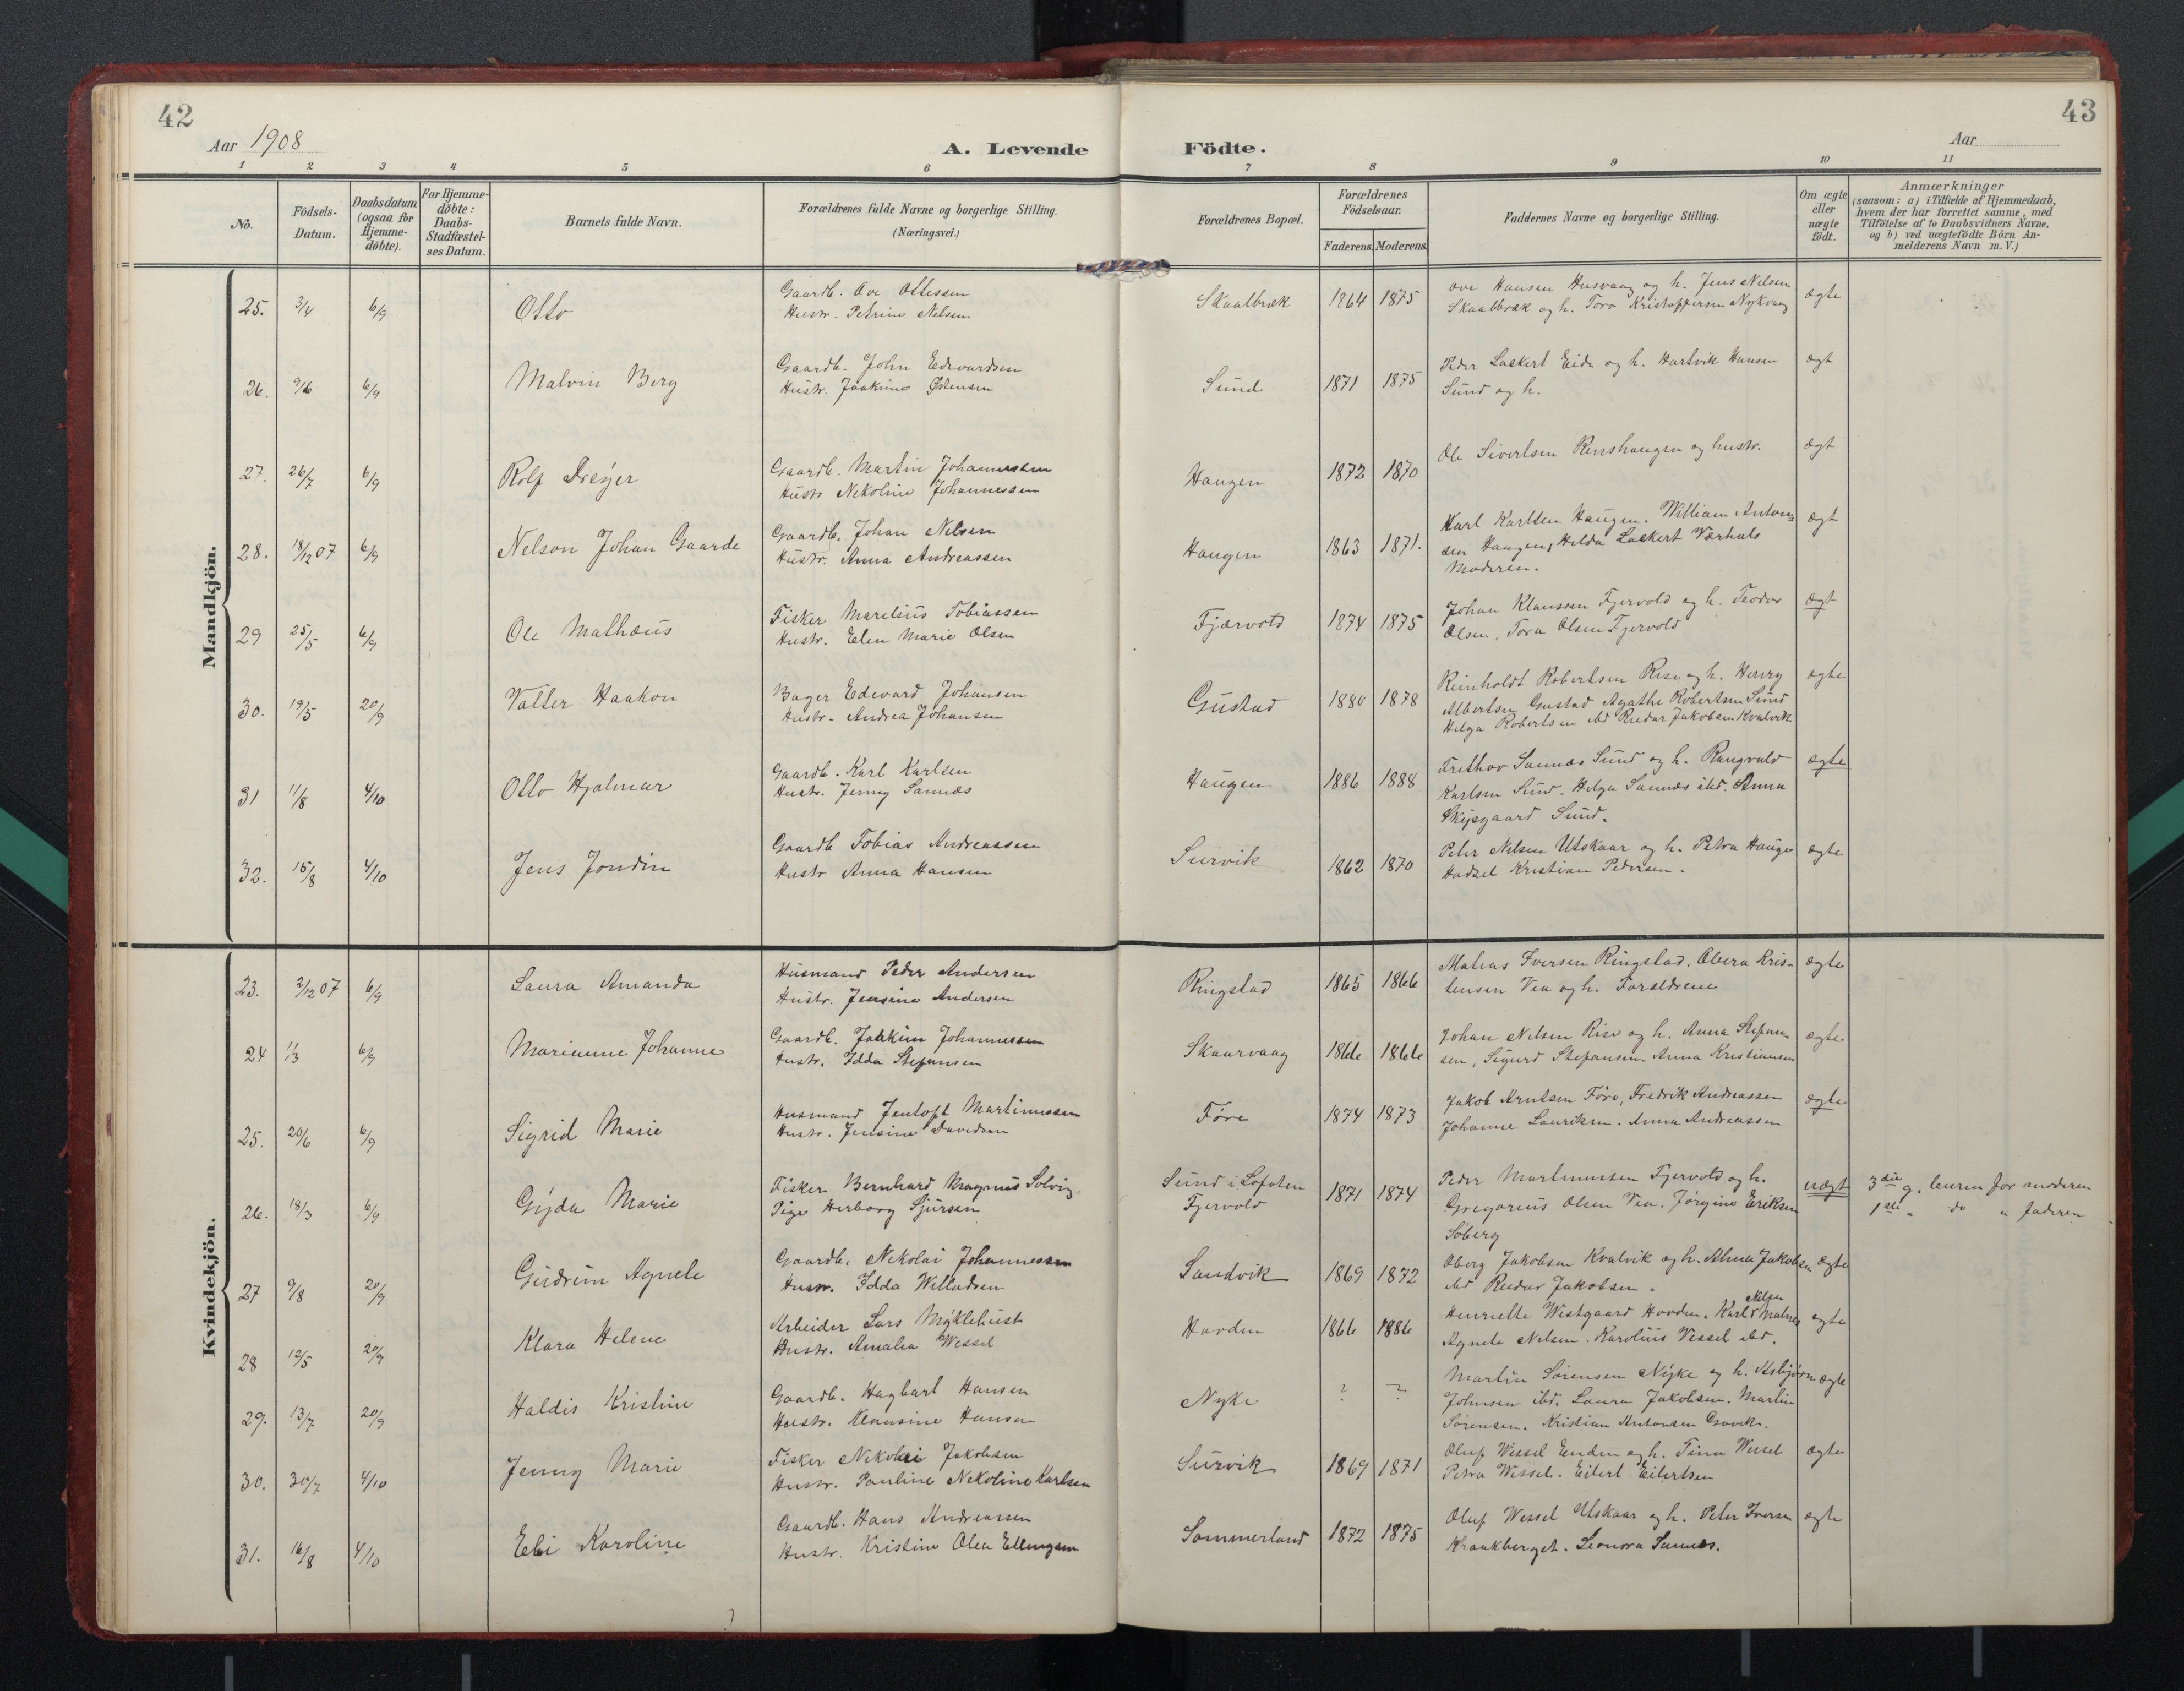 42
43
Aar 1908
A. Levende
Födte.
Aar
1 2 3 4 5 6 7 8 9 10 11
No.
Födsels-
Datum.
Daabsdatum
(ogsaa for
Hjemme-
döbte).
For Hjemme-
döbte:
Daabs-
Stadfæstel-
ses Datum.
Barnets fulde Navn.
Forældrenes fulde Navne og borgerlige Stilling.
(Næringsvei.)
Forældrenes Bopæl.
Forældrenes
Födselsaar.
Faderens. Moderens.
Faddernes Navne og borgerlige Stilling.
Om ægte
eller
uægte
födt.
Anmærkninger
(saasom: a) i Tilfælde af Hjemmedaab,
hvem der har forrettet samme, med
Tilföielse af to Daabsvidners Navne,
og b) ved uægtefödte Börn An-
melderens Navn m.V.)
Mandkjön.
25. 3/4 6/9 Otto
Gaardb. Ove Ottessen
Hustr. Petrine Nelsen
Skaalbræk 1864 1875
Ove Hansen Husvaag og h. Jens Nelsen
Skaalbræk og h. Tora Kristoffersen Nykvaag
ægte
26. 9/6 6/9 Malvin Berg
Gaardb. John Edvardsen
Hustr. Joakime Østensen
Sund 1871 1875
Peder Lockert Eide og h. Hartvik Hansen
Sund og h.
ægt
27. 26/7 6/9 Rolf Dreyer
Gaardb. Martin Johannessen
Hustr Nekoline Johannessen
Haugen 1872 1870
Ole Sivertsen Renshaugen og hustr.
ægt
28. 18/12 07 6/9 Nelson Johan Gaarde
Gaardb. Johan Nelsen
Hustr. Anna Andreassen
Haugen 1863 1871.
Karl Karlsen Haugen. William Anton-
sen Haugen, Helda Lockert Værhals
Moderen.
ægt
29 25/5 6/9 Ole Mathæus
Fisker Marelius Tobiassen
Hustr. Elen Marie Olsen
Fjærvold 1874 1875
Johan Klaussen Fjervold og h. Teodor
Olsen, Tora Olsen Fjervold
ægt
30. 19/5 20/9 Valter Haakon
Bager Edevard Johansen
Hustr. Andrea Johansen
Gustad 1880 1878
Reinholdt Robertsen Rise og h. Henry
Albertsen Gustad Agathe Robertsen Sund
Helga Robertsen ibd Reidar Jakobsen Kvalvik
ægte
31 11/8 4/10 Otto Hjalmar
Gaardb. Karl Karlsen
Hustr. Jenny Sannes
Haugen 1886 1888
Frethov Sannes Sund og h. Rangvald
Karlsen Sund. Helga Sannes ibd. Anna
Skjesgaard Sund.
ægte
32. 15/8 4/10 Jens Jondin
Gaardb Tobias Andreassen
Hustr Anna Hansen
Survik 1862 1870
Peter Nelsen Utskaar og h. Petra Hauge
Hadsel Kristian Pedersen.
ægte
Kvindekjön.
23. 2/12 07 6/9 Laura Amanda
Husmand Peder Andersen
Hustr. Jensine Andersen
Ringstad 1865 1866
Matias Iversen Ringstad. Olvera Kris-
tensen Vea og h. Forældrene
ægte
24 1/3 6/9 Marianne Johanne
Gaardb. Joakim Johannessen
Hustr. Idda Stefansen
Skaarvaag 1866 1866
Johan Nelsen Rise og h. Anna Stefan-
sen, Sigurd Stefansen. Anna Kristiansen
ægte
25. 20/6 6/9 Sigrid Marie
Husmand Jentoft Martinussen
Hustr. Jensine Davidsen
Føre 1874 1873
Jakob Arntsen Føre, Fredrik Andreassen
Johanne Lauriksen. Anna Andreassen
ægte
26. 18/3 6/9 Gyda Marie
Fisker Bernhard Magnus Solvig
Pige Herborg Sjursen
Sund i Lofoten
Fjervold
1871 1874
Peder Martinussen Fjervold og h.
Gregorius Olsen Vea. Jørgine Eriksen
Søberg
uægt
3die g. leirm for moderen
1ste " do " faderen
27 9/8 20/9 Gudrun Agnele
Gaardb. Nekolai Johannessen
Hustr. Idda Willadsen
Sandvik 1869 1872
Oberg Jakobsen Kvalvik og h. Alma Jakobsen
ibd Reidar Jakobsen.
ægte
28 12/5 20/9 Klara Helene
Arbeider Lars Myklehust
Hustr. Amalia Wessel
Hovden 1866 1886
Henriette Westgaard Hovden. Karl Nelsen Malnes
Agnete Nelsen. Karolius Vessel ibd.
ægte
29. 13/7 20/9 Haldis Kristine
Gaardb. Hagbart Hansen
Hustr. Klausine Hansen
Nyke ? ?
Martin Sørensen Nyke og h. Asbjørn
Johnsen ibd. Laura Jakobsen. Martin
Sørensen. Kristian Antonsen
ægte
30. 30/7 4/10 Jenny Marie
Fisker Nekolai Jakobsen
Hustr. Pauline Nekoline Karlsen
Survik 1869 1871
Oluf Wessel Enden og h. Tina Wessel
Petra Wessel. Eilert Eilertsen
ægte
31. 16/8 4/10 Eli Karoline
Gaardb. Hans Andreassen
Hustr. Kristine Olea Ellingsen
Sommerland 1872 1875
Oluf Wessel Utskaar og h. Peter Iversen
Kraakberget. Leonora Sannes.
ægte